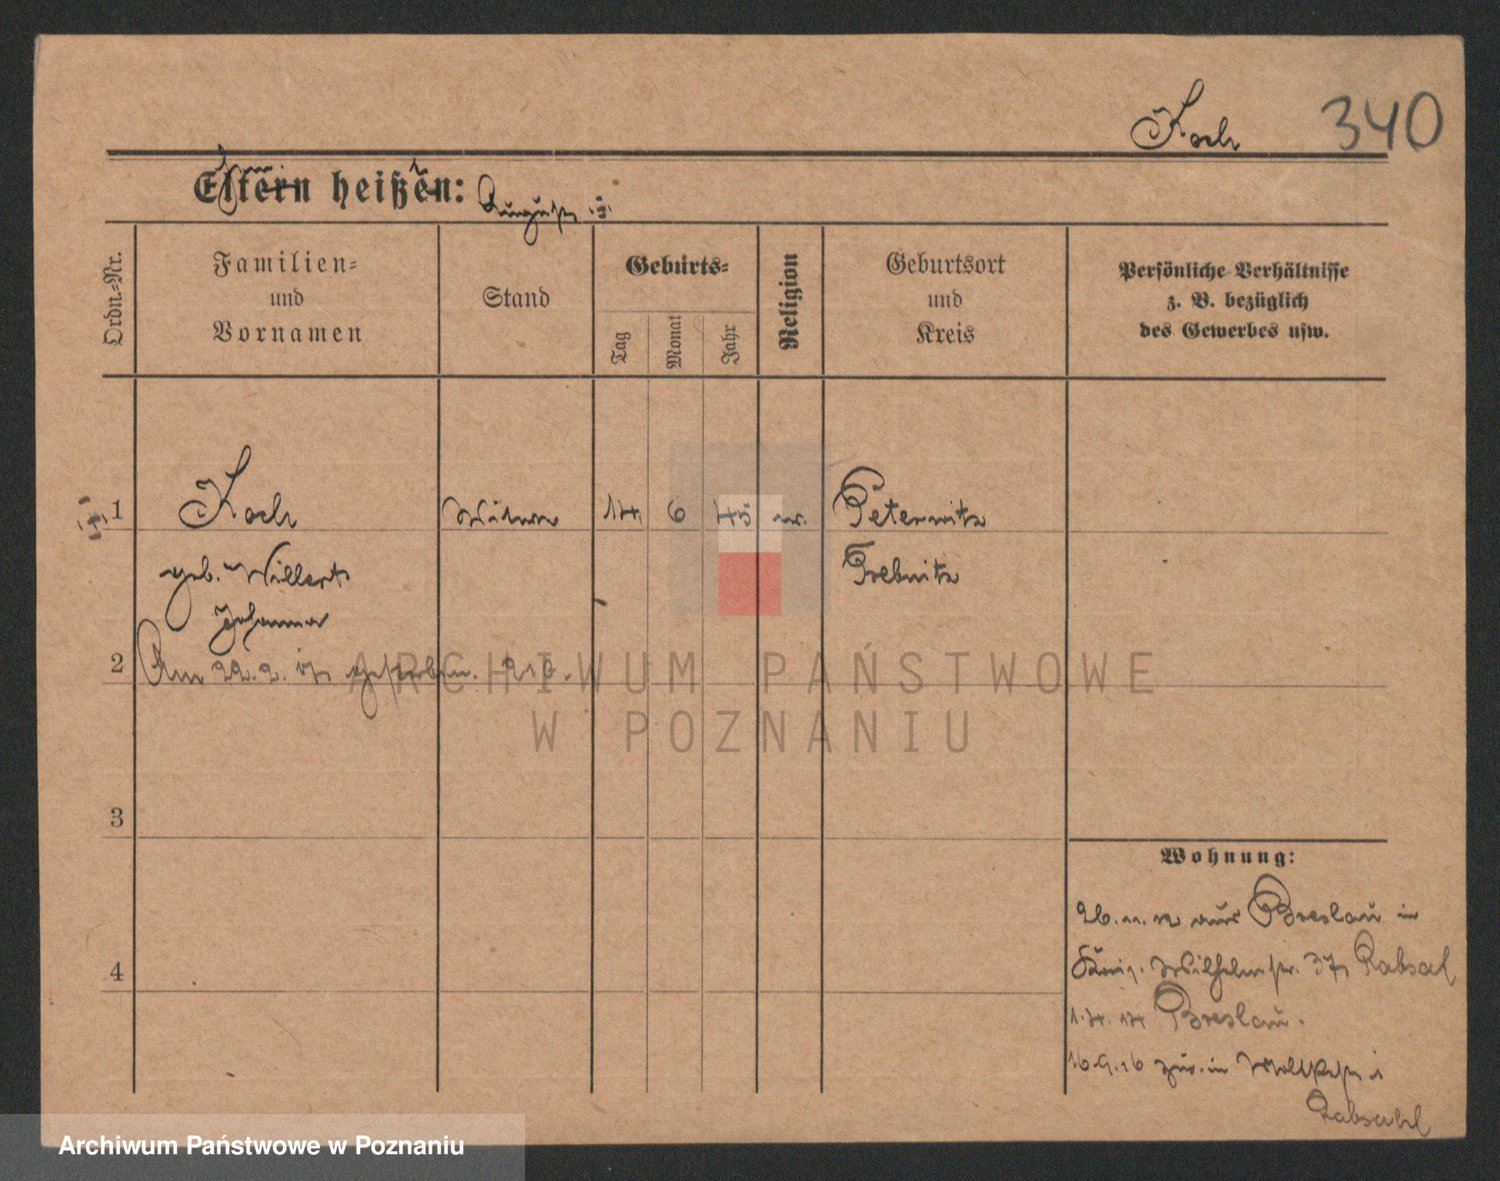 Koch 340
Eltern heißen:
Ordn.-Nr.
Familien-
und
Vornamen
Stand
Geburts-
Tag
Monat
Jahr
Religion
Geburtsort
und
Kreis
Persönliche Verhältnisse
z. B. bezüglich
des Gewerbes usw.
1 Koch Witwe 14 6 45 Peterwitz
geb. Willert Trebnitz
Johanna
2 Am 22.2.17 gestorben.
ARCHIWUM PAŃSTWOWE
W POZNANIU
3
Wohnung:
26.11.12 aus Breslau in
4
Königl. Wilhelmstr. 37, Rabsal
1.4.14 Breslau.
16.9.16 zur. in Moltkestr.
Rabsahl
Archiwum Państwowe w Poznaniu